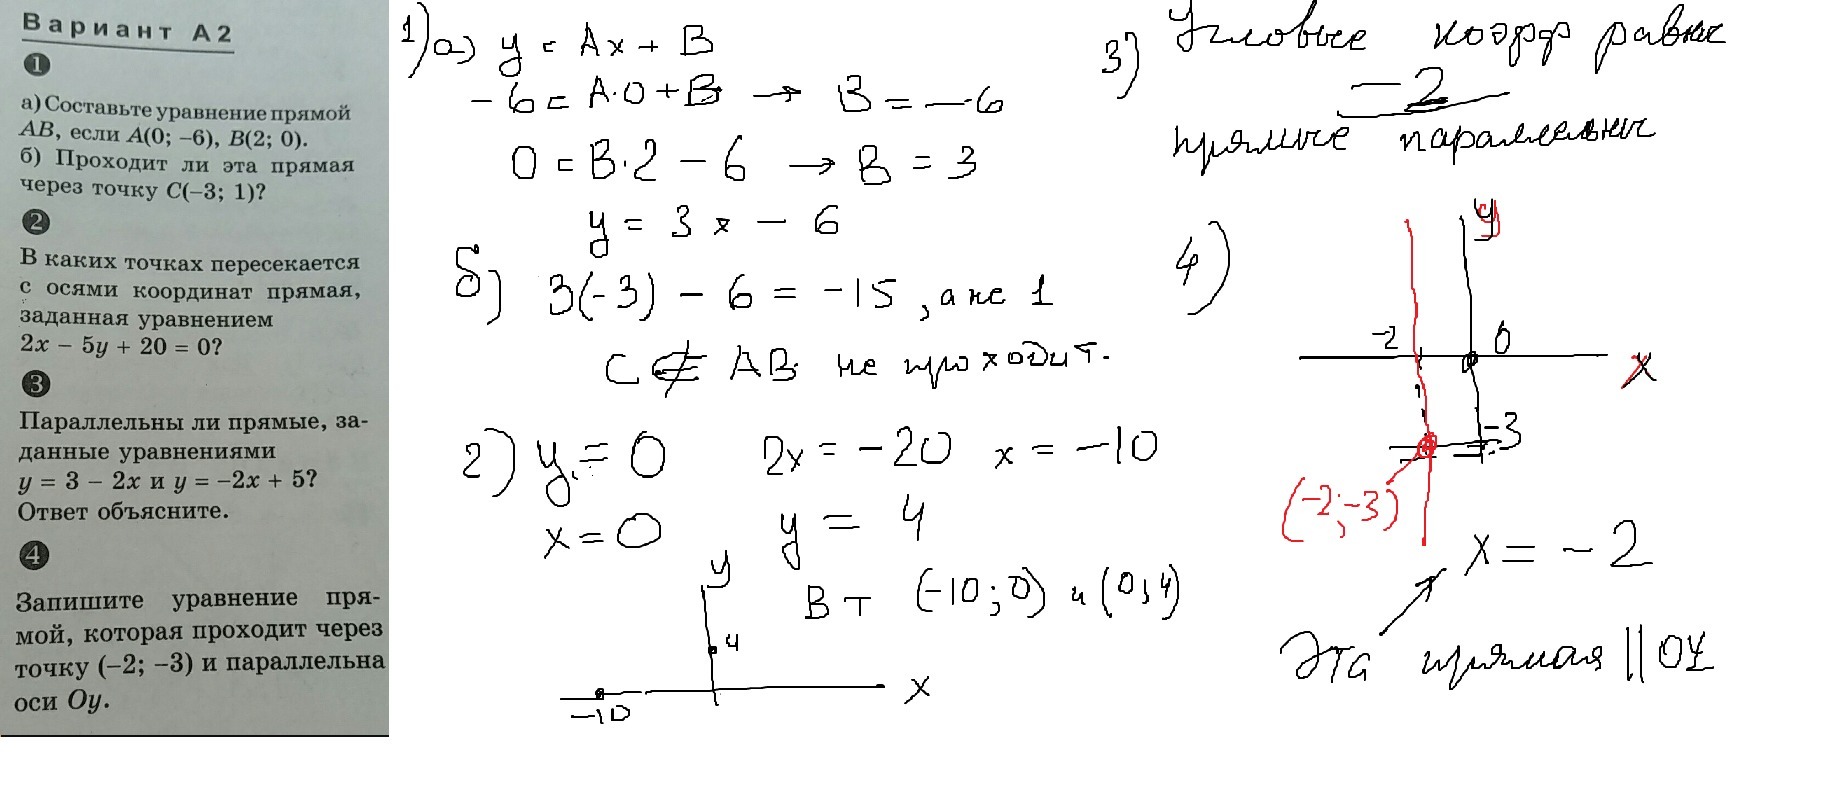 Вариант А2
1
а) Составьте уравнение прямой
AB, если A(0; –6), B(2; 0).
б) Проходит ли эта прямая
через точку C(–3; 1)?
2
В каких точках пересекается
с осями координат прямая,
заданная уравнением
2x – 5y + 20 = 0?
3
Параллельны ли прямые, за-
данные уравнениями
y = 3 – 2x и y = –2x + 5?
Ответ объясните.
4
Запишите уравнение пря-
мой, которая проходит через
точку (–2; –3) и параллельна
оси Oy.
1) а) y = Ax + B
-6 = A·0 + B → B = -6
0 = B·2 - 6 → B = 3
y = 3x - 6
б) 3(-3) - 6 = -15, а не 1
C ∉ AB не проходит.
2) y = 0 2x = -20 x = -10
x = 0 y = 4
В т (-10; 0) и (0, 4)
y
4
-10
x
3) Угловые коэфф равны
-2
прямые параллельны
4)
y
-2
0
x
-3
(-2; -3)
x = -2
Эта прямая || OY